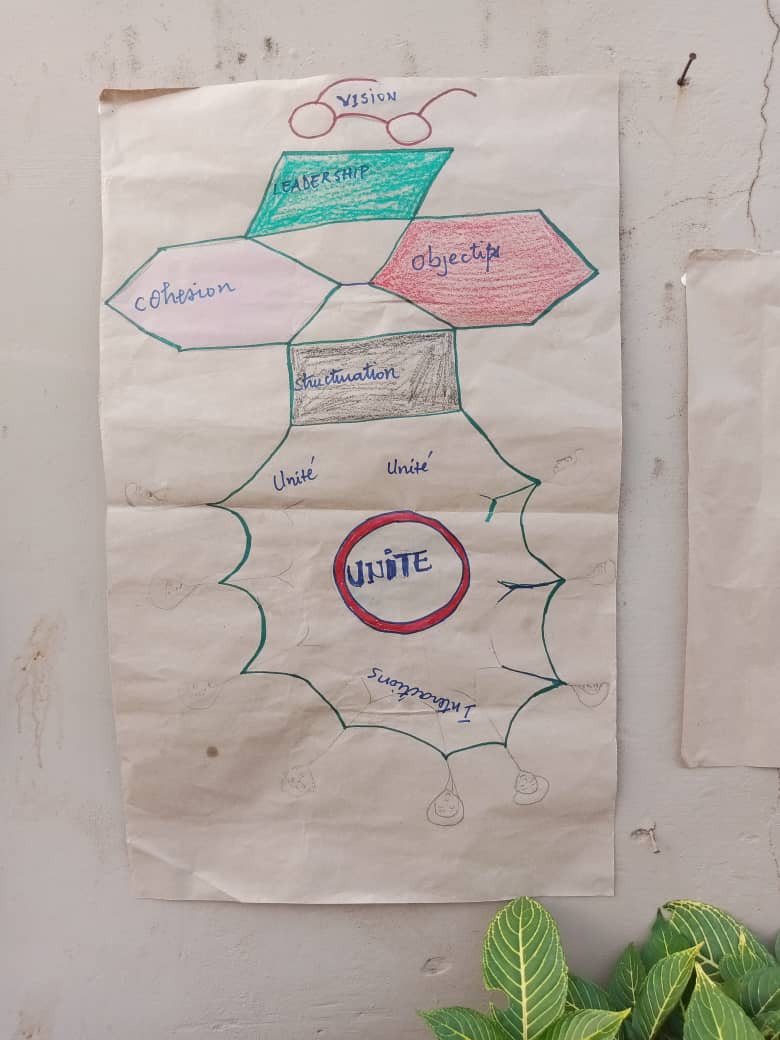 VISION
LEADERSHIP
Objectifs
COhesion
Structuration
Unité Unité
UNiTE
Interactions